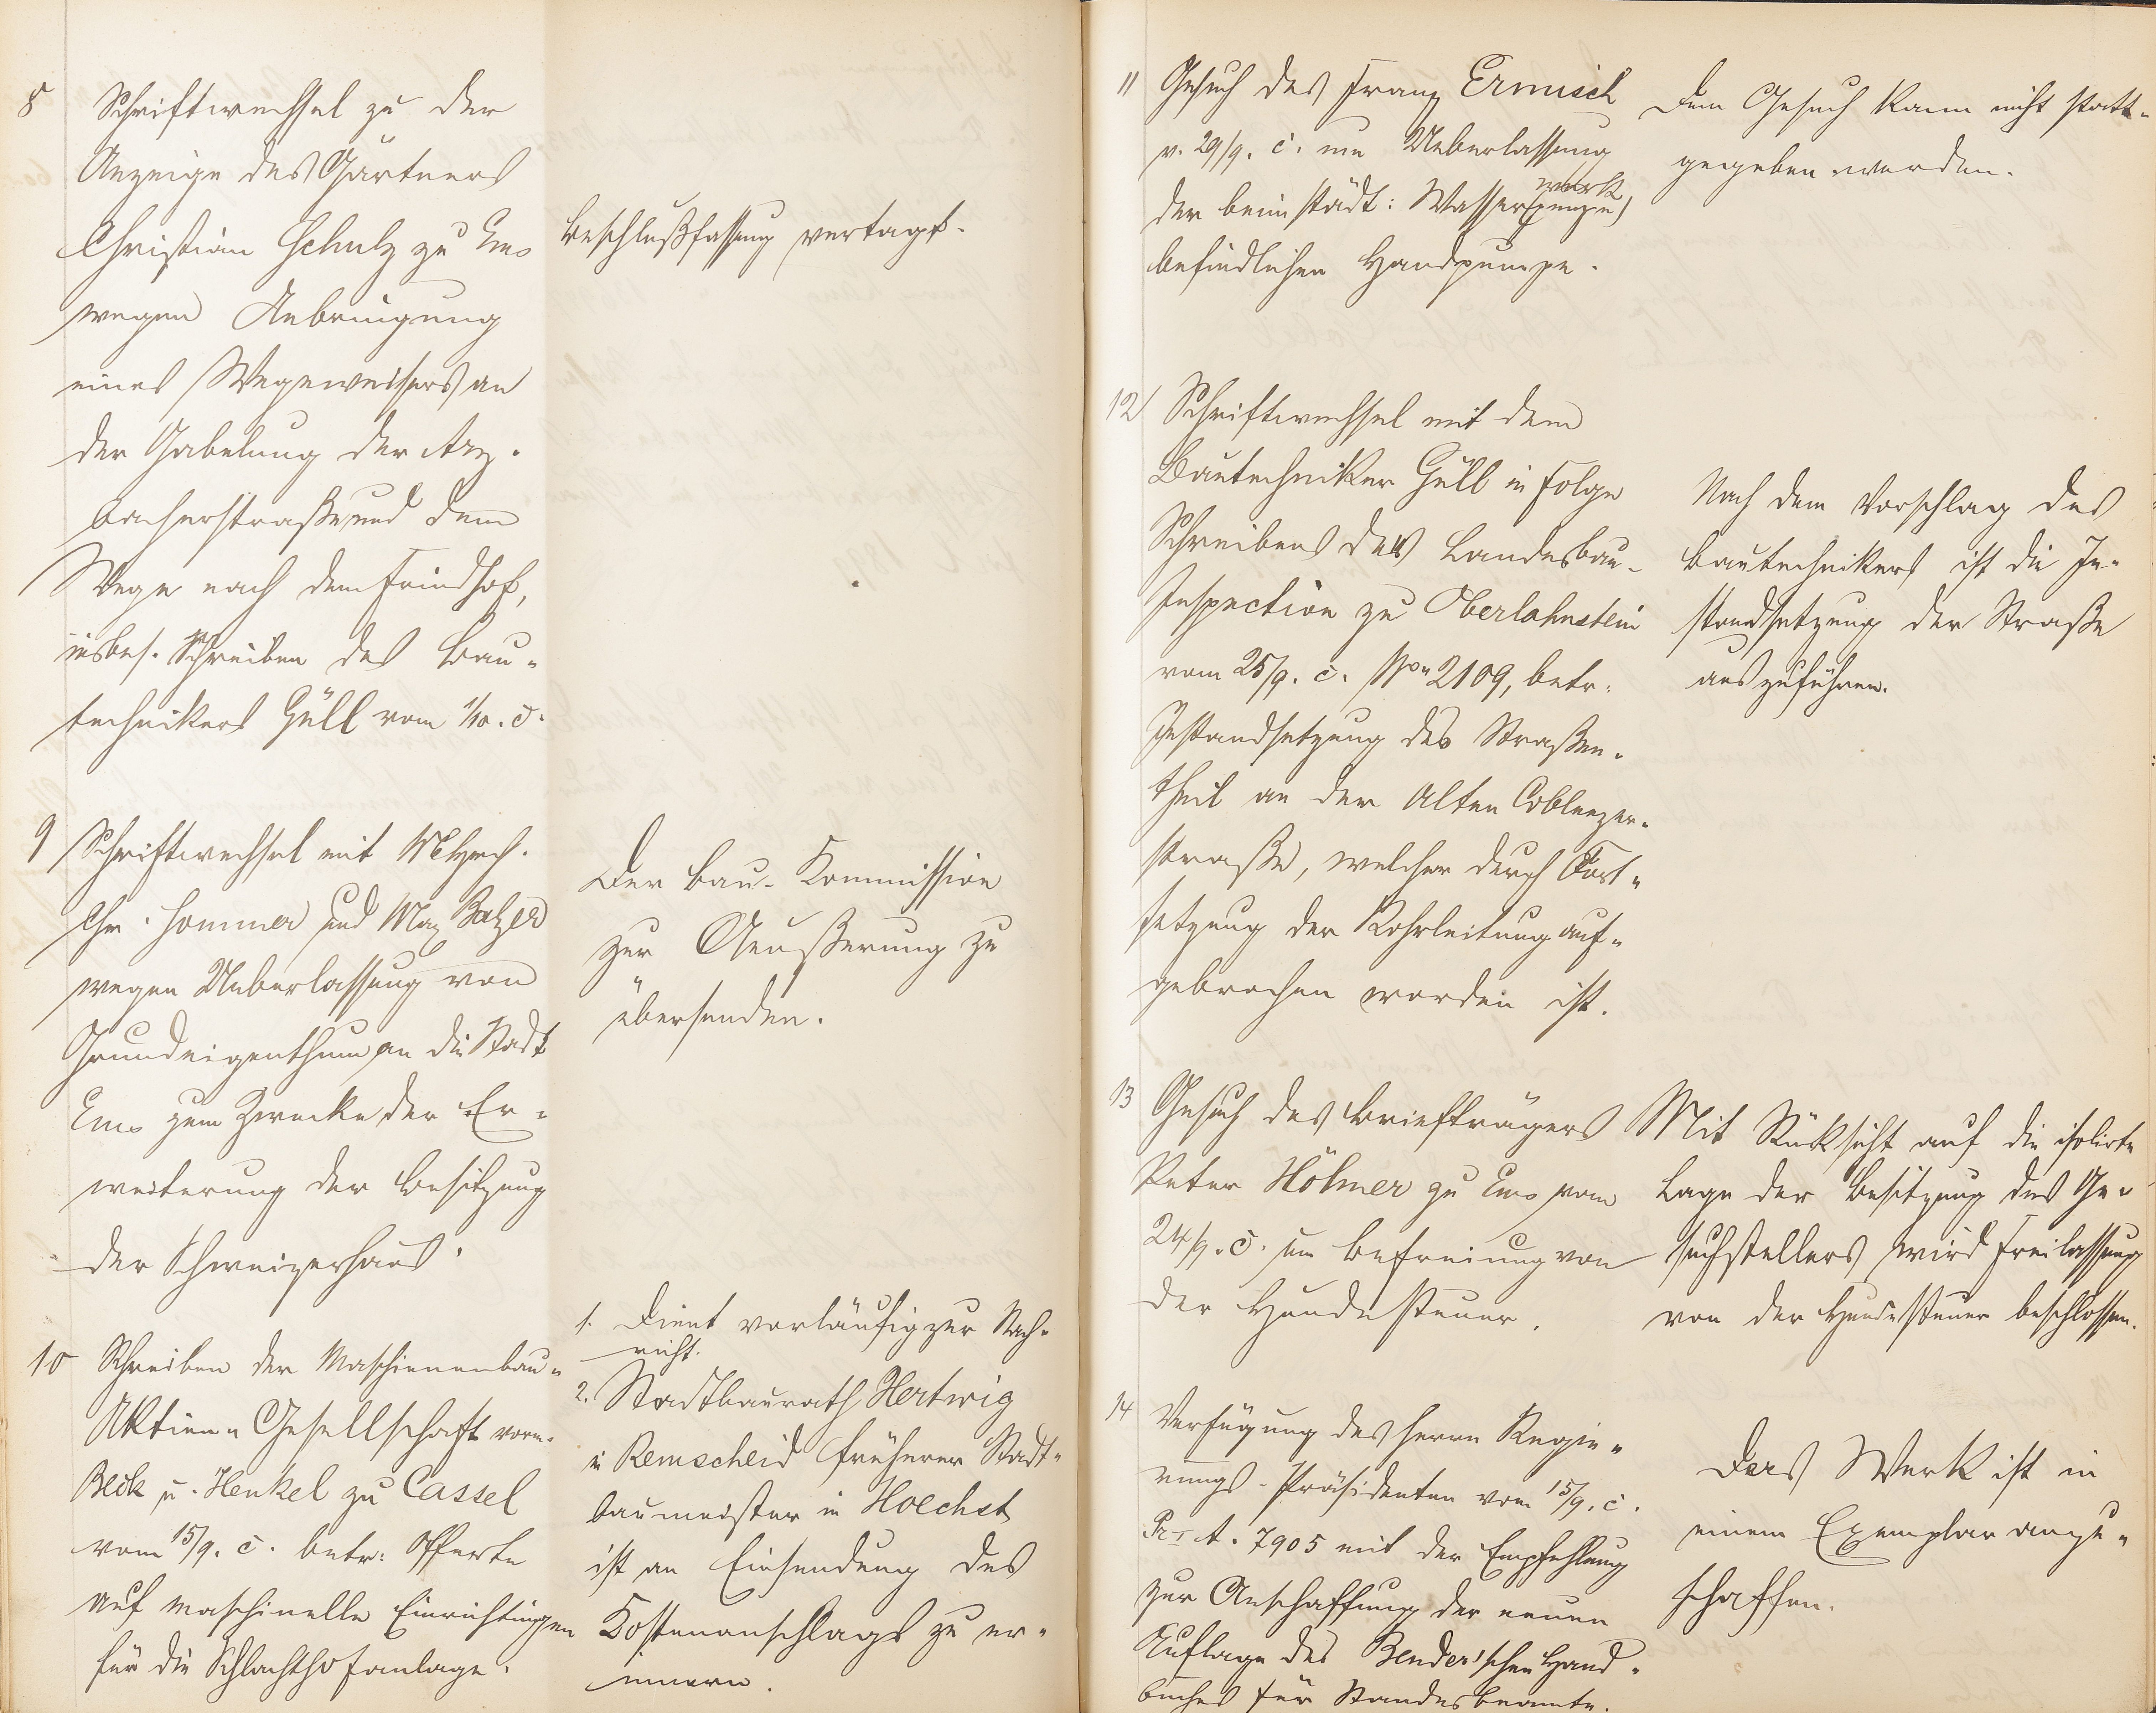 8 Schriftwechsel zu der
Anzeige des Gärtners
Christian Schulz zu Ems
wegen Anbringung
eines Wegeweisers an
der Gabelung der Arz-
bacherstraße und dem
Wege nach dem Friedhof,
insbes. Schreiben des Bau-
technikers Güll vom 1/10. c.
Beschlußfassung vertagt.
9 Schriftwechsel mit
Chr. Sommer und Max Balzer
wegen Ueberlassung von
Grundeigenthum an die Stadt
Ems zum Zwecke der Er-
weiterung der Besitzung
der Schweizerhaus.
Der Bau-Kommission
zur Aeußerung zu
übersenden.
10 Schreiben der Maschinenbau-
Aktien-Gesellschaft vorm.
Beck u. Henkel zu Cassel
vom 15/9. c. betr. Offerte
auf maschinelle Einrichtungen
für die Schlachthofanlage.
1. Dient vorläufig zur Nach-
richt.
2. Stadtbaurath Hertwig
in Remscheid früherer Stadt-
baumeister in Hoechst
ist an Einsendung des
Kostenanschlags zu er-
innern.
11 Gesuch des Franz Ermisch
v. 29/9. c. um Ueberlassung
der beim städt: Wasserwerk
befindlichen Handpumpe.
Dem Gesuch kann nicht statt-
gegeben werden.
12 Schriftwechsel mit dem
Bautechniker Güll in Folge
Schreibens der Landesbau-
Inspection zu Oberlahnstein
vom 25/9. c. No 2109, betr.
Instandsetzung des Straßen-
theil an der Alten Coblenzer-
straße, welcher durch Fort-
setzung der Rohrleitung auf-
gebrochen worden ist.
Nach dem Vorschlag des
Bautechnikers ist die In-
standsetzung der Straße
auszuführen.
13 Gesuch des Briefträgers
Peter Höhner zu Ems vom
24/9. c. um Befreiung von
der Hundesteuer.
Mit Rücksicht auf die isolirte
Lage der Besitzung des Ge-
suchstellers wird Freilassung
von der Hundesteuer beschlossen.
14 Verfügung des Herrn Regie-
rungs-Präsidenten vom 15/9. c.
Pr. I A. 7905 mit der Empfehlung
zur Anschaffung der neuen
Auflage des Bender'schen Hand-
buches für Standesbeamte.
Das Werk ist in
einem Exemplar anzu-
schaffen.